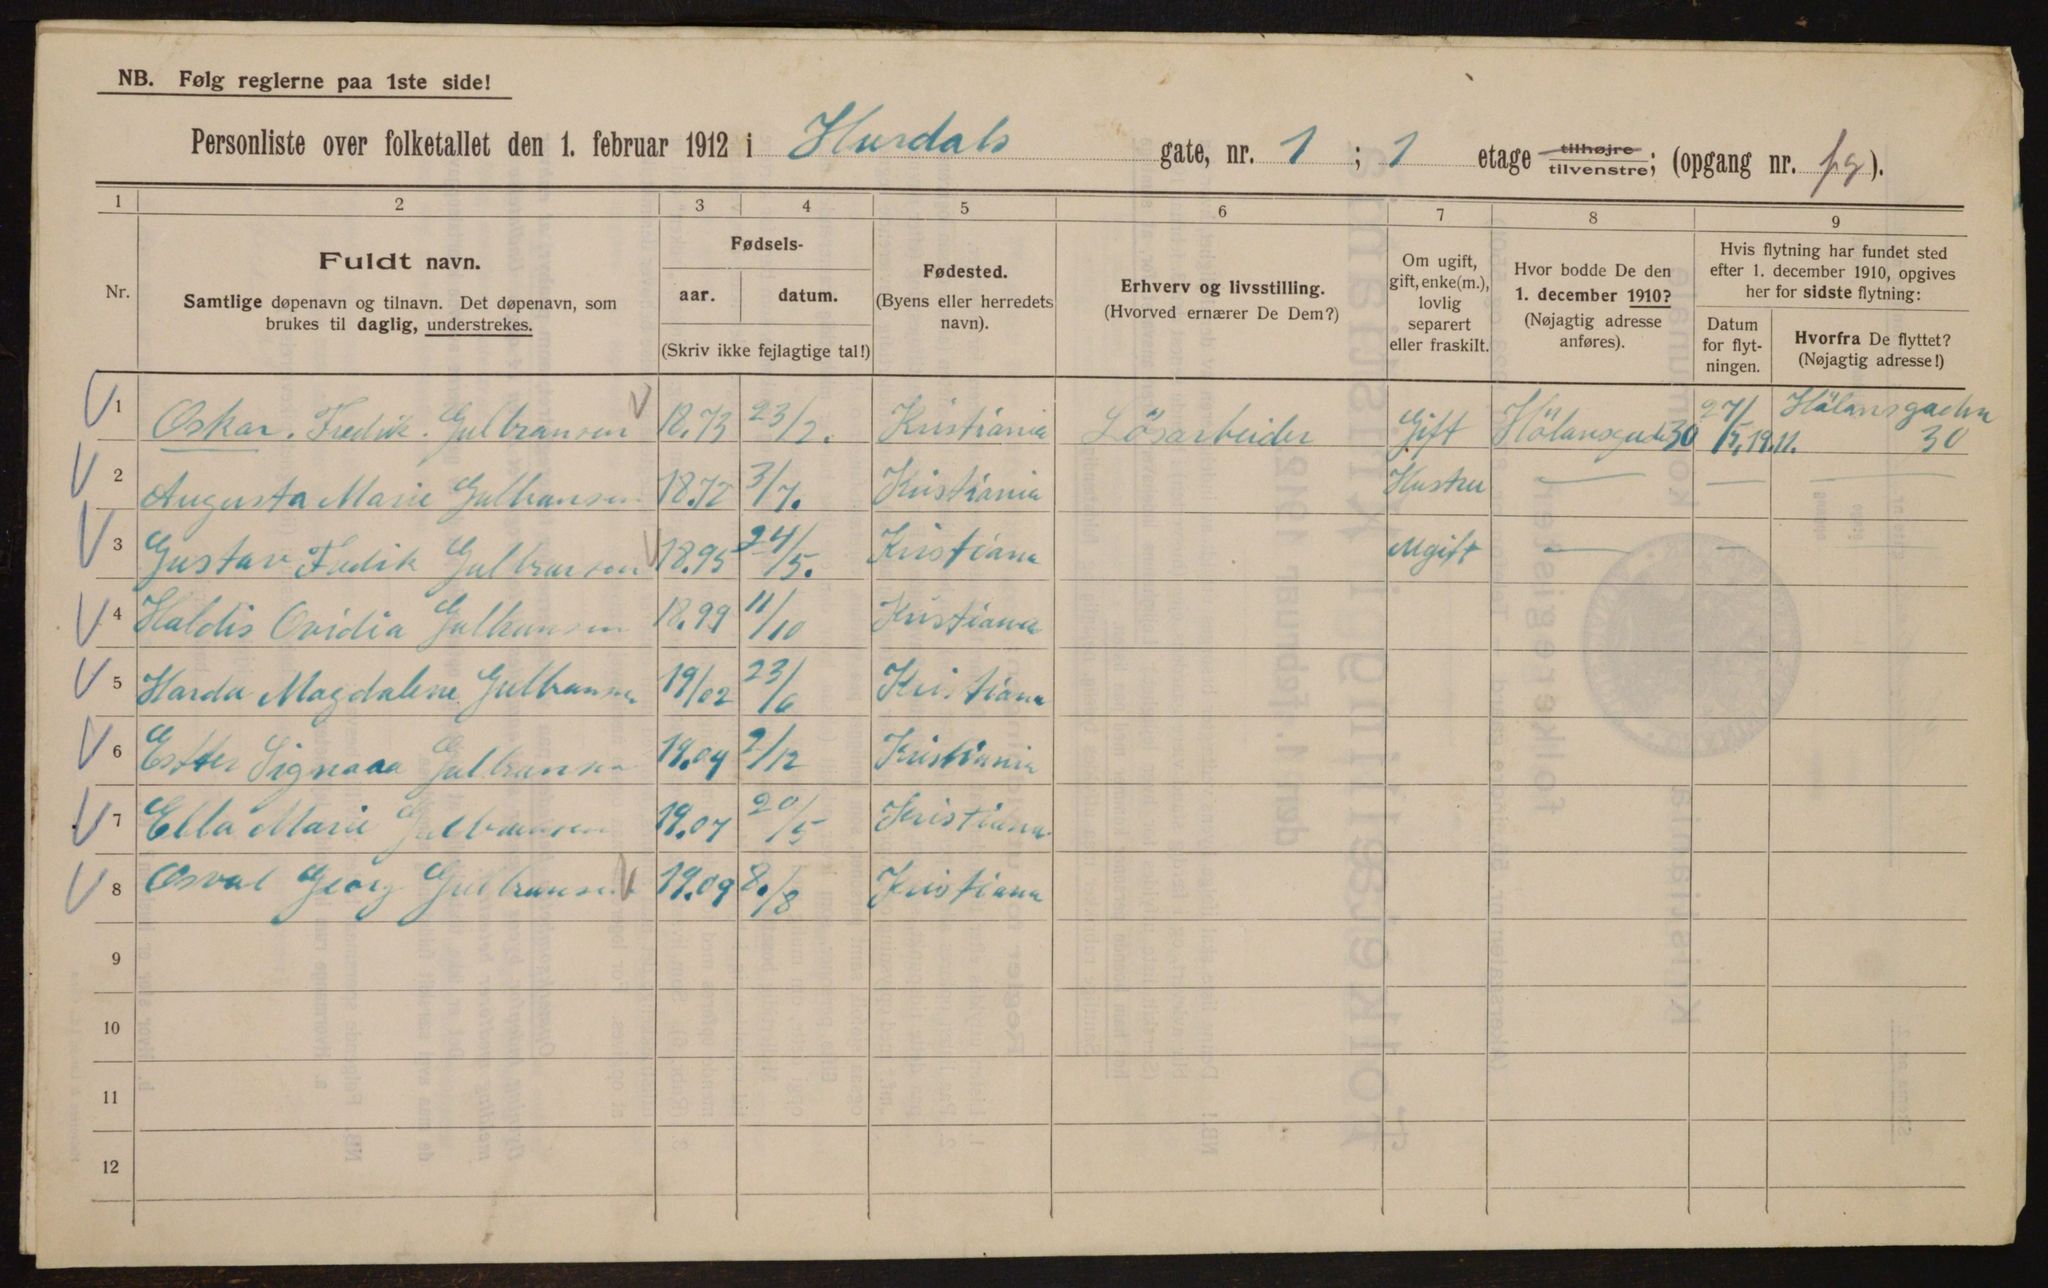 NB. Følg reglerne paa 1ste side!
Personliste over folketallet den 1. februar 1912 i Hurdals gate, nr. 1 ; 1 etage tilhøjre tilvenstre; (opgang nr. pg).
1 2 3 4 5 6 7 8 9
Nr.
Fuldt navn.
Samtlige døpenavn og tilnavn. Det døpenavn, som
brukes til daglig, understrekes.
Fødsels-
aar. datum.
(Skriv ikke fejlagtige tal!)
Fødested.
(Byens eller herredets
navn).
Erhverv og livsstilling.
(Hvorved ernærer De Dem?)
Om ugift,
gift, enke(m.),
lovlig
separert
eller fraskilt.
Hvor bodde De den
1. december 1910?
(Nøjagtig adresse
anføres).
Hvis flytning har fundet sted
efter 1. december 1910, opgives
her for sidste flytning:
Datum
for flyt-
ningen.
Hvorfra De flyttet?
(Nøjagtig adresse!)
1 Oskar. Fredik. Gulbransen 18.73 23/2. Kristiania Lösarbeider Gift Hölansgade 30 27/5. 19.11. Hölansgaden 30
2 Augusta Marie Gulbransen 18.72 3/7. Kristiania Hustru — — —
3 Gustav Fredik Gulbransen 18.95 24/5. Kristiana Ugift — — —
4 Haldis Ovidia Gulbransen 18.99 11/10 Kristiana
5 Harda Magdalene Gulbransen 19/02 23/6 Kristiana
6 Ester Signaaa Gulbransen 19.04 2/12 Kristiania
7 Ella Marie Gulbransen 19.07 20/5 Kristiana
8 Osval Georg Gulbransen 19.09 8./8 Kristiana
9
10
11
12